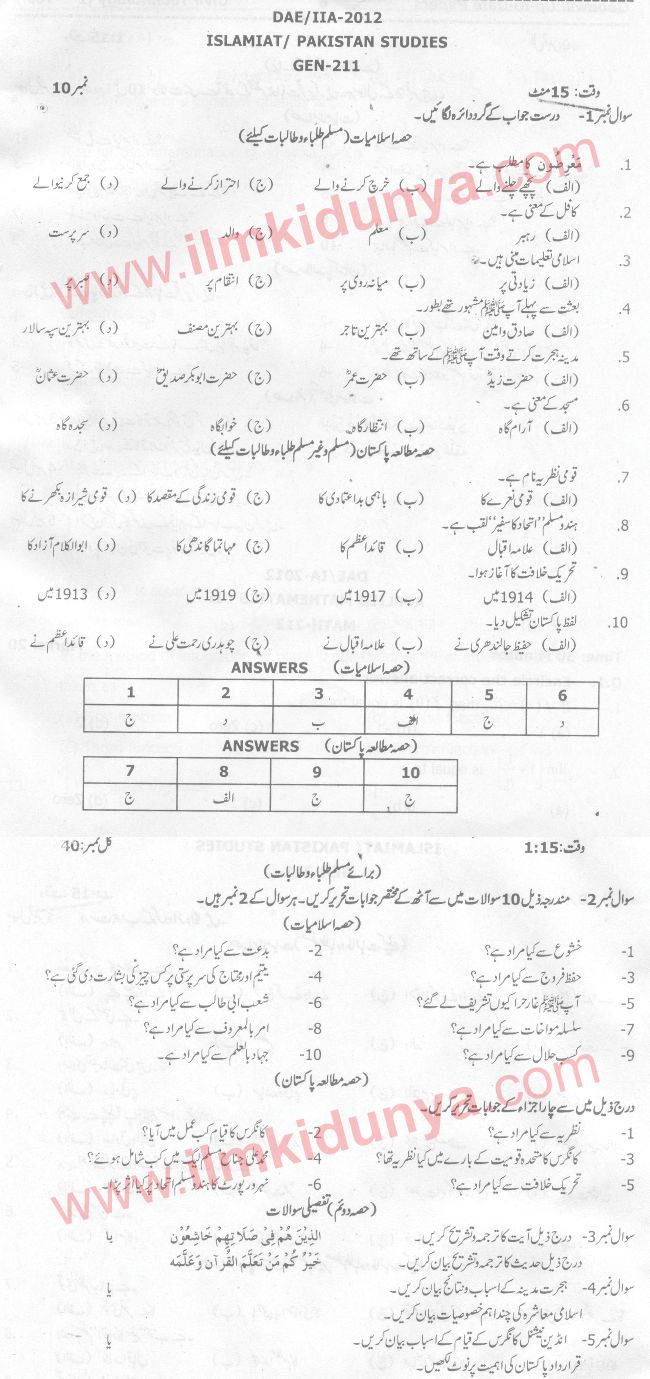 DAE/IIA-2012
ISLAMIAT/ PAKISTAN STUDIES
GEN-211
وقت: 15 منٹ نمبر 10
سوال نمبر 1- درست جواب کے گرد دائرہ لگائیں۔
حصہ اسلامیات (مسلم طلباء و طالبات کیلئے)
1. مَعْرِضُون کا مطلب ہے۔
(الف) پیچھے چلنے والے (ب) خرچ کرنے والے (ج) احتراز کرنے والے (د) جمع کرنیوالے
2. کافل کے معنی ہے۔
(الف) رہبر (ب) معلم (ج) والد (د) سرپرست
3. اسلامی تعلیمات مبنی ہیں۔
(الف) زیادتی پر (ب) میانہ روی پر (ج) انتقام پر (د) صبر پر
4. بعثت سے پہلے آپ ﷺ مشہور تھے بطور۔
(الف) صادق و امین (ب) بہترین تاجر (ج) بہترین مصنف (د) بہترین سپہ سالار
5. مدینہ ہجرت کرتے وقت آپ ﷺ کے ساتھ تھے۔
(الف) حضرت زیدؓ (ب) حضرت عمرؓ (ج) حضرت ابوبکر صدیقؓ (د) حضرت عثمانؓ
6. مسجد کے معنی ہے۔
(الف) آرام گاہ (ب) انتظار گاہ (ج) خوابگاہ (د) سجدہ گاہ
حصہ مطالعہ پاکستان (مسلم و غیر مسلم طلباء و طالبات کیلئے)
7. قومی نظریہ نام ہے۔
(الف) قومی نعرے کا (ب) باہمی بداعتمادی کا (ج) قومی زندگی کے مقصد کا (د) قومی شیرازہ بکھرنے کا
8. ہندو مسلم "اتحاد کا سفیر" لقب ہے۔
(الف) علامہ اقبال (ب) قائداعظم کا (ج) مہاتما گاندھی کا (د) ابوالکلام آزاد کا
9. تحریک خلافت کا آغاز ہوا۔
(الف) 1914 میں (ب) 1917 میں (ج) 1919 میں (د) 1913 میں
10. لفظ پاکستان تشکیل دیا۔
(الف) حفیظ جالندھری نے (ب) علامہ اقبال نے (ج) چوہدری رحمت علی نے (د) قائداعظم نے
ANSWERS (حصہ اسلامیات)
1 2 3 4 5 6
ج د ب الف ج د
ANSWERS (حصہ مطالعہ پاکستان)
7 8 9 10
ج الف ج ج
وقت: 1:15 کل نمبر: 40
(برائے مسلم طلباء و طالبات)
سوال نمبر 2- مندرجہ ذیل 10 سوالات میں سے آٹھ کے مختصر جوابات تحریر کریں۔ ہر سوال کے 2 نمبر ہیں۔
(حصہ اسلامیات)
1- خشوع سے کیا مراد ہے؟ 2- بدعت سے کیا مراد ہے؟
3- حفظ فروج سے کیا مراد ہے؟ 4- یتیم اور محتاج کی سرپرستی پر کس چیز کی بشارت دی گئی ہے؟
5- آپ ﷺ غار حرا کیوں تشریف لے گئے؟ 6- شعب ابی طالب سے کیا مراد ہے؟
7- سلسلہ مواخات سے کیا مراد ہے؟ 8- امر بالمعروف سے کیا مراد ہے؟
9- کسب حلال سے کیا مراد ہے؟ 10- جہاد بالعلم سے کیا مراد ہے۔
(حصہ مطالعہ پاکستان)
درج ذیل میں سے چار اجزاء کے جوابات تحریر کریں۔
1- نظریہ سے کیا مراد ہے؟ 2- کانگرس کا قیام کب عمل میں آیا؟
3- کانگرس کا متحدہ قومیت کے بارے میں کیا نظریہ تھا؟ 4- محمد علی جناح مسلم لیگ میں کب شامل ہوئے؟
5- تحریک خلافت سے کیا مراد ہے؟ 6- نہرو رپورٹ کا ہندو مسلم اتحاد پر کیا اثر پڑا۔
(حصہ دوئم) تفصیلی سوالات
سوال نمبر 3- درج ذیل آیت کا ترجمہ و تشریح کریں۔ الَّذِيْنَ هُمْ فِىْ صَلَاتِهِمْ خَاشِعُوْن یا
درج ذیل حدیث کا ترجمہ و تشریح بیان کریں۔ خَيْرُ كُمْ مَنْ تَعَلَّمَ الْقُرآن وَعَلَّمَه
سوال نمبر 4- ہجرت مدینہ کے اسباب و نتائج بیان کریں۔ یا
اسلامی معاشرہ کی چند اہم خصوصیات بیان کریں۔
سوال نمبر 5- انڈین نیشنل کانگرس کے قیام کے اسباب بیان کریں۔ یا
قرارداد پاکستان کی اہمیت پر نوٹ لکھیں۔
www.ilmkidunya.com
www.ilmkidunya.com